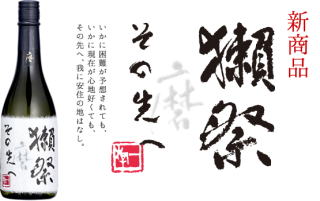 新商品
獺祭
磨
その先へ
いかに困難が予想されても、
いかに現在が心地好くても、
その先へ、我に安住の地はなし。
磨
獺祭
その先へ